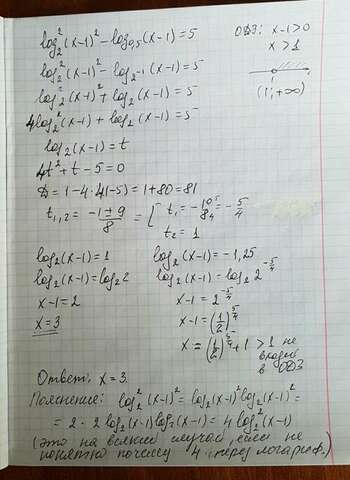 log₂²(x-1)² - log₀,₅(x-1) = 5
ОДЗ: x-1>0
x>1
log₂²(x-1)² - log₂-₁(x-1) = 5
1
(1; +∞)
log₂²(x-1)² + log₂(x-1) = 5
4log₂²(x-1) + log₂(x-1) = 5
log₂(x-1) = t
4t² + t - 5 = 0
D = 1 - 4·4(-5) = 1+80 = 81
t₁,₂ = (-1±9)/8 = [ t₁ = -10/8 = -5/4
t₂ = 1
log₂(x-1) = 1
log₂(x-1) = log₂2
x-1 = 2
x = 3
log₂(x-1) = -1,25
log₂(x-1) = log₂ 2^(-5/4)
x-1 = 2^(-5/4)
x-1 = (1/2)^(5/4)
x = (1/2)^(5/4) + 1 > 1 не
входит
в ОДЗ
Ответ: x = 3.
Пояснение: log₂²(x-1)² = log₂(x-1)² log₂(x-1)² =
= 2·2 log₂(x-1) log₂(x-1) = 4 log₂²(x-1)
(это на всякий случай, если не
понятно почему 4 перед логариф.)